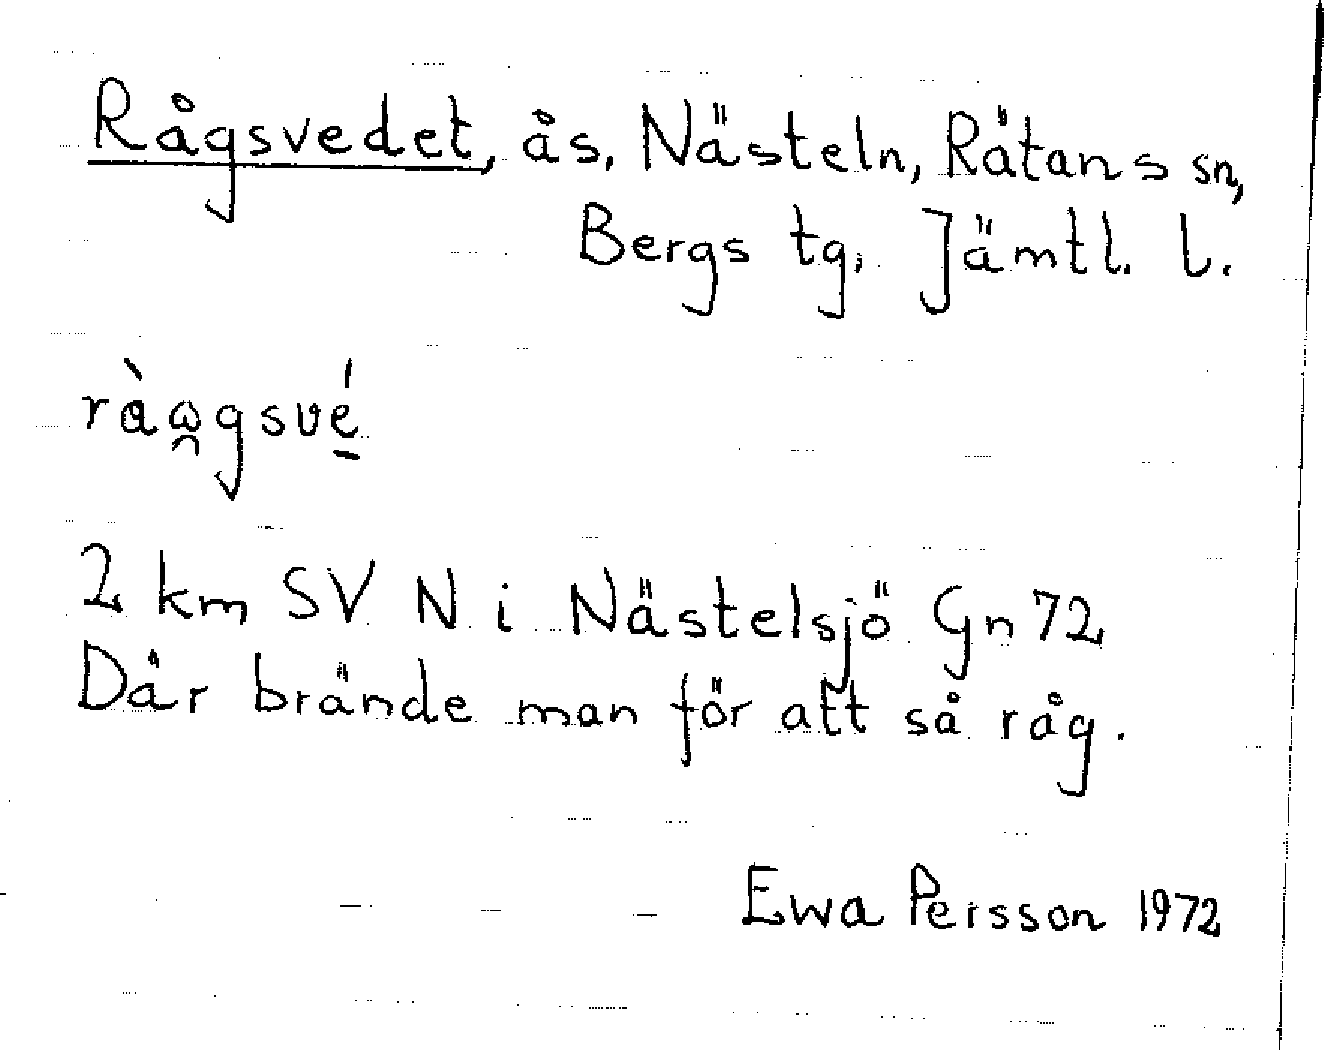 Rågsvedet, ås, Nästeln, Rätans sn,
Bergs tg, Jämtl. l.
ràω̯gsvé̠
2 km SV N i Nästelsjö Gn 72
Där brände man för att så råg.
Ewa Persson 1972